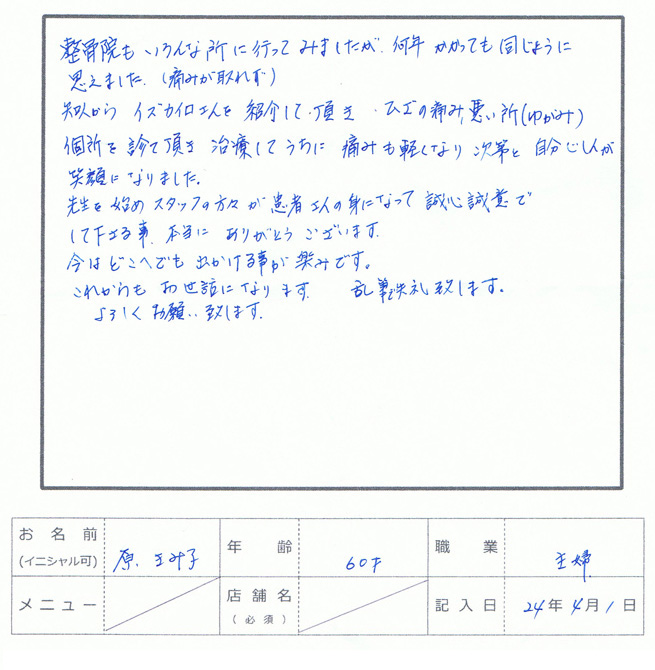 整骨院もいろんな所に行ってみましたが、何年かかっても同じように
思えました。(痛みが取れず)
知人からイズカイロさんを紹介して頂き、ひざの痛み、悪い所(ゆがみ)
個所を診て頂き治療してうちに痛みも軽くなり次第と自分じしんが
笑顔になりました。
先生を始めスタッフの方々が患者さんの身になって誠心誠意で
して下さる事、本当にありがとうございます。
今はどこへでも出かける事が楽みです。
これからもお世話になります 乱筆で失礼致します。
よろしくお願い致します。
お名前(イニシャル可) 原 きみ子 年齢 60才 職業 主婦
メニュー 店舗名(必須) 記入日 24年4月1日